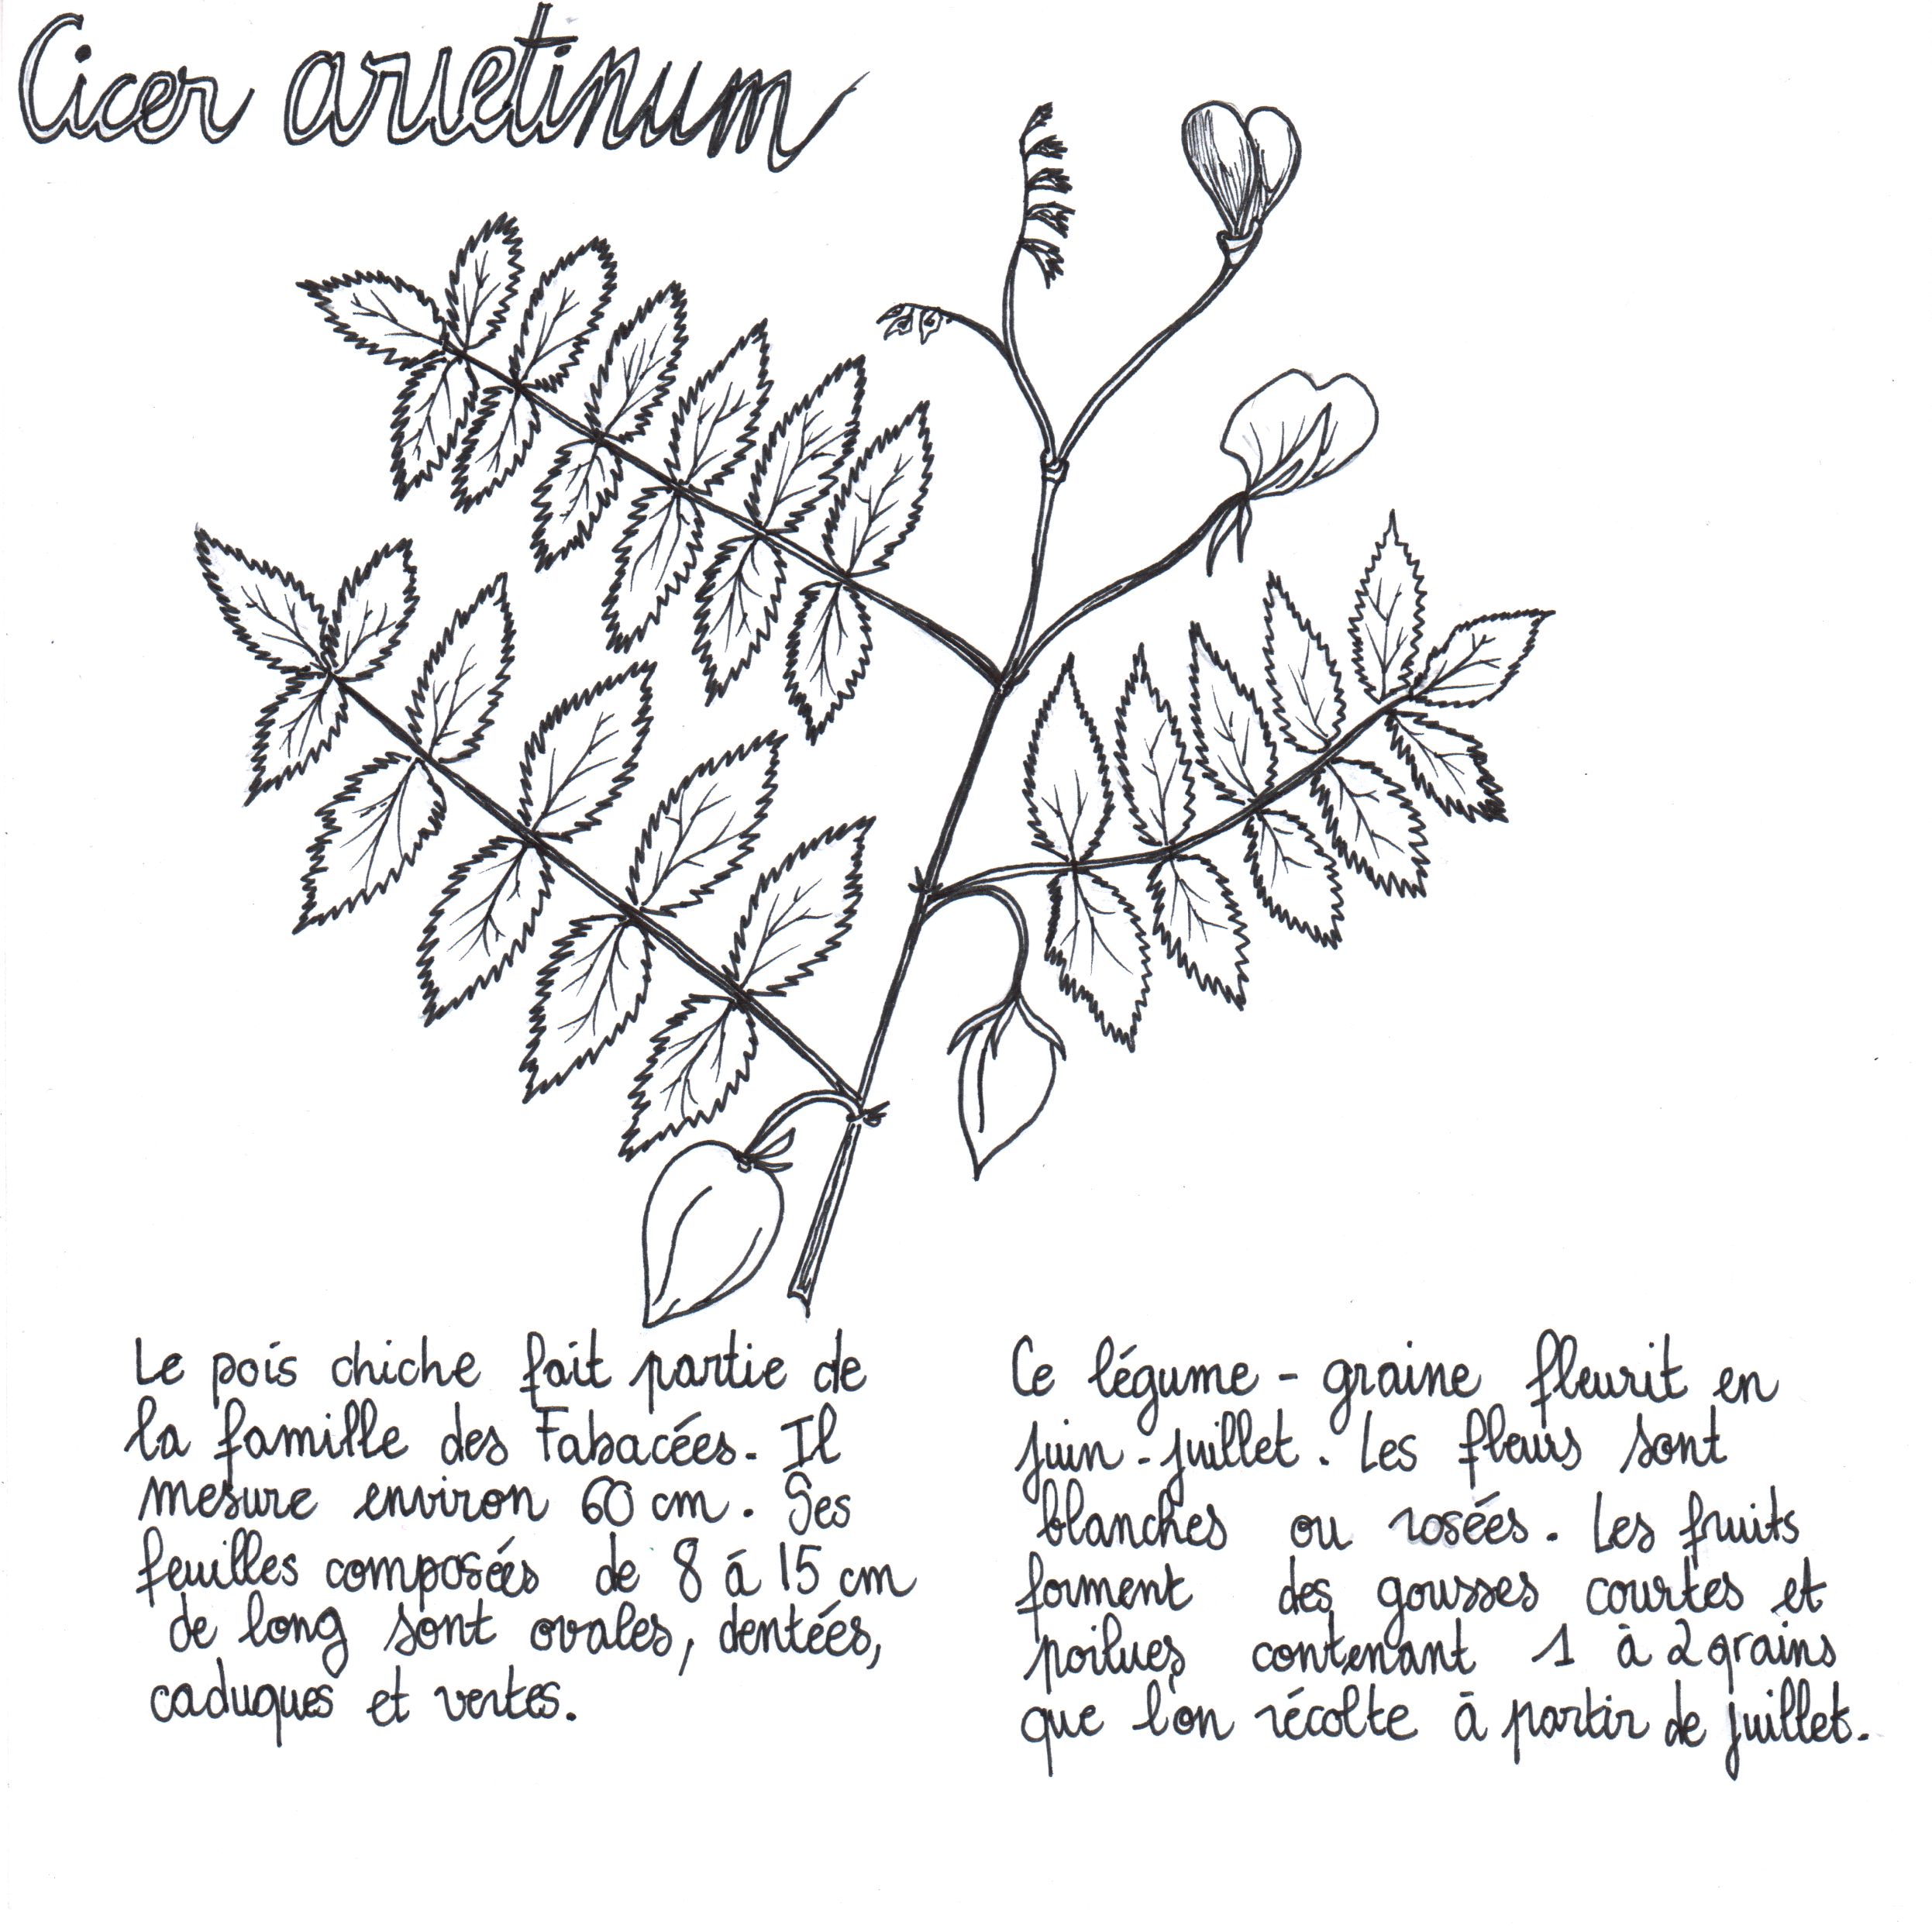 Cicer arietinum
Le pois chiche fait partie de
la famille des Fabacées. Il
mesure environ 60 cm. Ses
feuilles composées de 8 à 15 cm
de long sont ovales, dentées,
caduques et vertes.
Ce légume - graine fleurit en
juin - juillet. Les fleurs sont
blanches ou rosées. Les fruits
forment des gousses courtes et
poilues contenant 1 à 2 grains
que l'on récolte à partir de juillet.